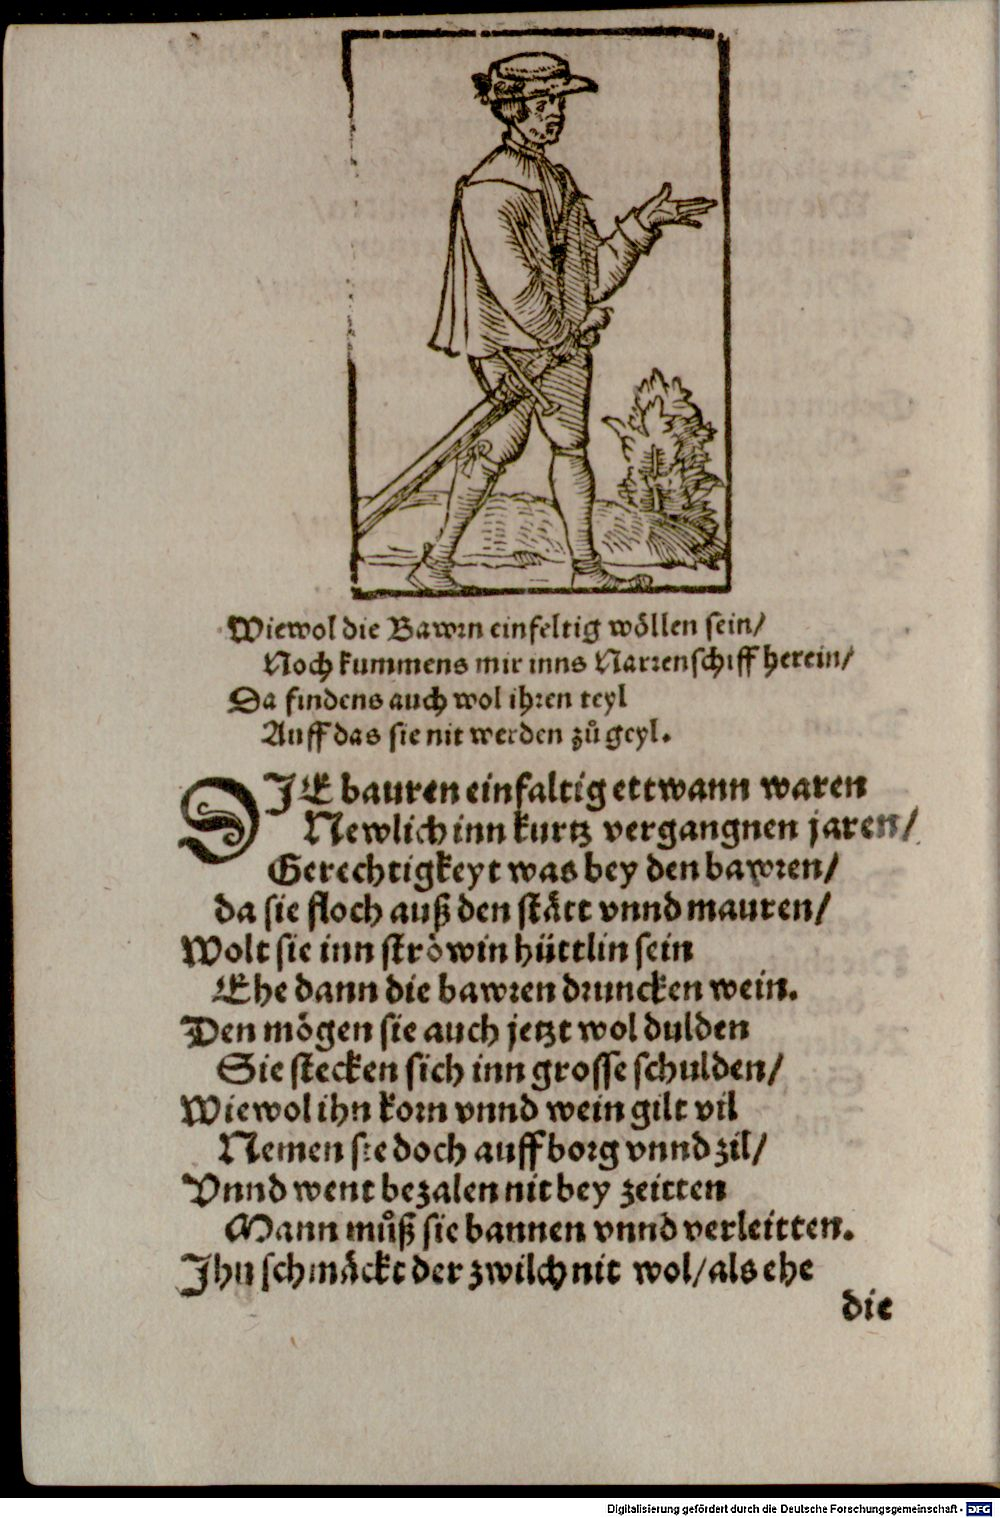 Wiewol die Bawrn einfeltig wöllen sein/
Noch kummens mir inns Narrenschiff herein/
Da findens auch wol ihren teyl
Auff das sie nit werden zů geyl.
DIE bauren einfaltig ettwann waren
Newlich inn kurtz vergangnen jaren/
Gerechtigkeyt was bey den bawren/
da sie floch auß den stätt vnnd mauren/
Wolt sie inn ströwin hüttlin sein
Ehe dann die bawren druncken wein.
Den mögen sie auch jetzt wol dulden
Sie stecken sich inn grosse schulden/
Wiewol ihn korn vnnd wein gilt vil
Nemen sie doch auff borg vnnd zil/
Vnnd went bezalen nit bey zeitten
Mann můß sie bannen vnnd verleitten.
Ihn schmäckt der zwilch nit wol/als ehe
die
Digitalisierung gefördert durch die Deutsche Forschungsgemeinschaft - DFG